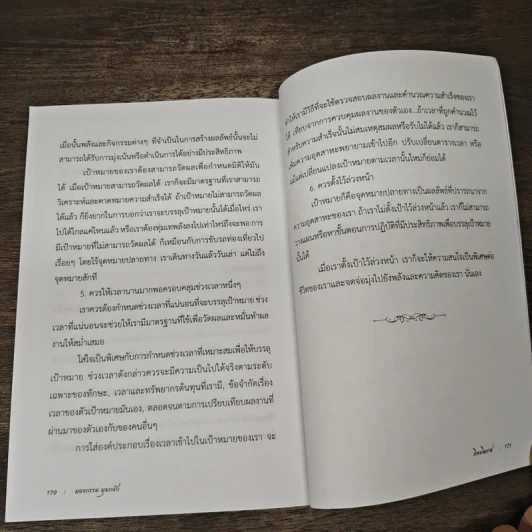 เมื่อนั้นพลังและกิจกรรมต่างๆ ที่จำเป็นในการสร้างผลลัพธ์นั้นจะไม่
สามารถได้รับการมุ่งเน้นหรือดำเนินการได้อย่างมีประสิทธิภาพ
เป้าหมายของเราต้องสามารถวัดผลเพื่อกำหนดมิติให้มัน
ได้ เมื่อเป้าหมายสามารถวัดผลได้ เราก็จะมีมาตรฐานที่เราสามารถ
วิเคราะห์และคาดหมายความสำเร็จได้ ถ้าเป้าหมายไม่สามารถวัดผล
ได้แล้ว ก็ยิ่งยากในการบอกว่าเราจะบรรลุเป้าหมายนั้นได้เมื่อไหร่ เรา
ไปได้ไกลแค่ไหนแล้ว หรือเราต้องทุ่มเทพลังลงไปเท่าไหร่ถึงจะพอ การ
มีเป้าหมายที่ไม่สามารถวัดผลได้ ก็เหมือนกับการขับรถท่องเที่ยวไป
เรื่อยๆ โดยไร้จุดหมายปลายทาง เราเดินทางวันแล้ววันเล่า แต่ไม่ถึง
จุดหมายสักที
5. ควรให้เวลานานมากพอครอบคลุมช่วงเวลาหนึ่งๆ
เราควรต้องกำหนดช่วงเวลาที่แน่นอนที่จะบรรลุเป้าหมาย ช่วง
เวลาที่แน่นอนจะช่วยให้เรามีมาตรฐานที่ใช้เพื่อวัดผลและหมั่นทำผล
งานให้สม่ำเสมอ
ใส่ใจเป็นพิเศษกับการกำหนดช่วงเวลาที่เหมาะสมเพื่อให้บรรลุ
เป้าหมาย ช่วงเวลาดังกล่าวควรจะมีความเป็นไปได้จริงตามระดับ
เฉพาะของทักษะ, เวลาและทรัพยากรต้นทุนที่เรามี, ข้อจำกัดเรื่อง
เวลาของตัวเป้าหมายมันเอง, ตลอดจนตามการเปรียบเทียบผลงานที่
ผ่านมาของตัวเองกับของคนอื่นๆ
การใส่องค์ประกอบเรื่องเวลาเข้าไปในเป้าหมายของเรา จะ
170 |
ทำให้เรามีวิธีที่จะใช้ตรวจสอบผลงานและคำนวณความสำเร็จของเรา
ได้ เทียบจากการควบคุมผลงานของตัวเอง...ถ้าเวลาที่ถูกคำนวณไว้
สำหรับความสำเร็จนั้นไม่สมเหตุสมผลหรือรับไม่ได้แล้ว เราก็สามารถ
เพิ่มความอุตสาหะพยายามเข้าไปอีก ปรับเปลี่ยนตารางเวลา หรือ
แม้แต่เปลี่ยนแปลงเป้าหมายตามเวลานั้นใหม่ก็ย่อมได้
6. ควรตั้งไว้ล่วงหน้า
เป้าหมายก็คือจุดหมายปลายทางเป็นผลลัพธ์ที่ปรารถนาจาก
ความอุตสาหะของเรา ถ้าเราไม่ตั้งเป้าไว้ล่วงหน้าแล้ว เราก็ไม่สามารถ
วางแผนหรือหาขั้นตอนการปฏิบัติที่มีประสิทธิภาพเพื่อบรรลุเป้าหมาย
นั้นได้
เมื่อเราตั้งเป้าไว้ล่วงหน้า เราก็จะให้ความสนใจเป็นพิเศษต่อ
ชีวิตของเราและจดจ่อมุ่งไปยังพลังและความคิดของเรา นั่นเอง
| 171